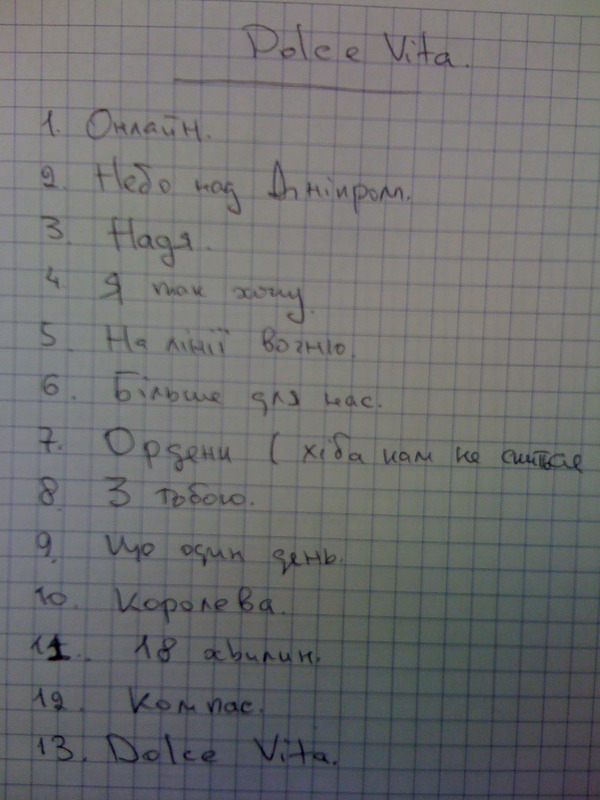 Dolce Vita.
1. Онлайн.
2. Небо над Дніпром.
3. Надя.
4. Я так хочу.
5. На лінії вогню.
6. Більше для нас.
7. Ордени ( хіба нам не
8. З тобою.
9. Що один день.
10. Королева.
11. 18 хвилин.
12. Компас.
13. Dolce Vita.